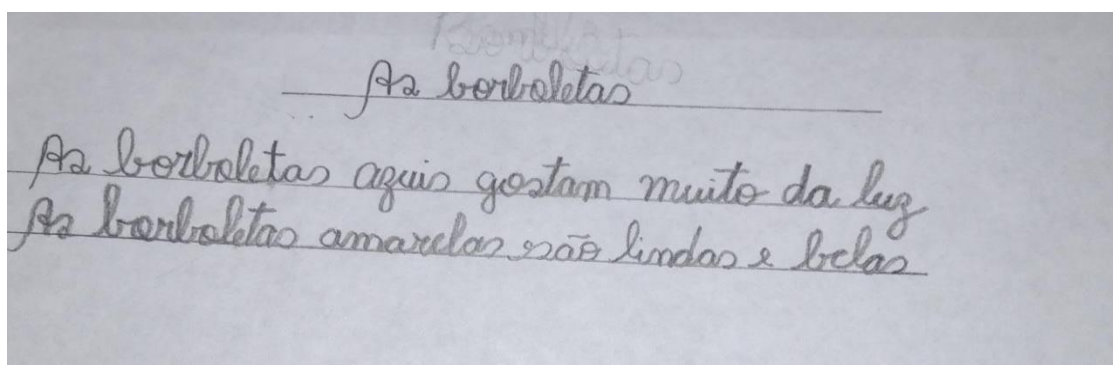 As borboletas
As borboletas azuis gostam muito da luz
As borboletas amarelas são lindas e belas